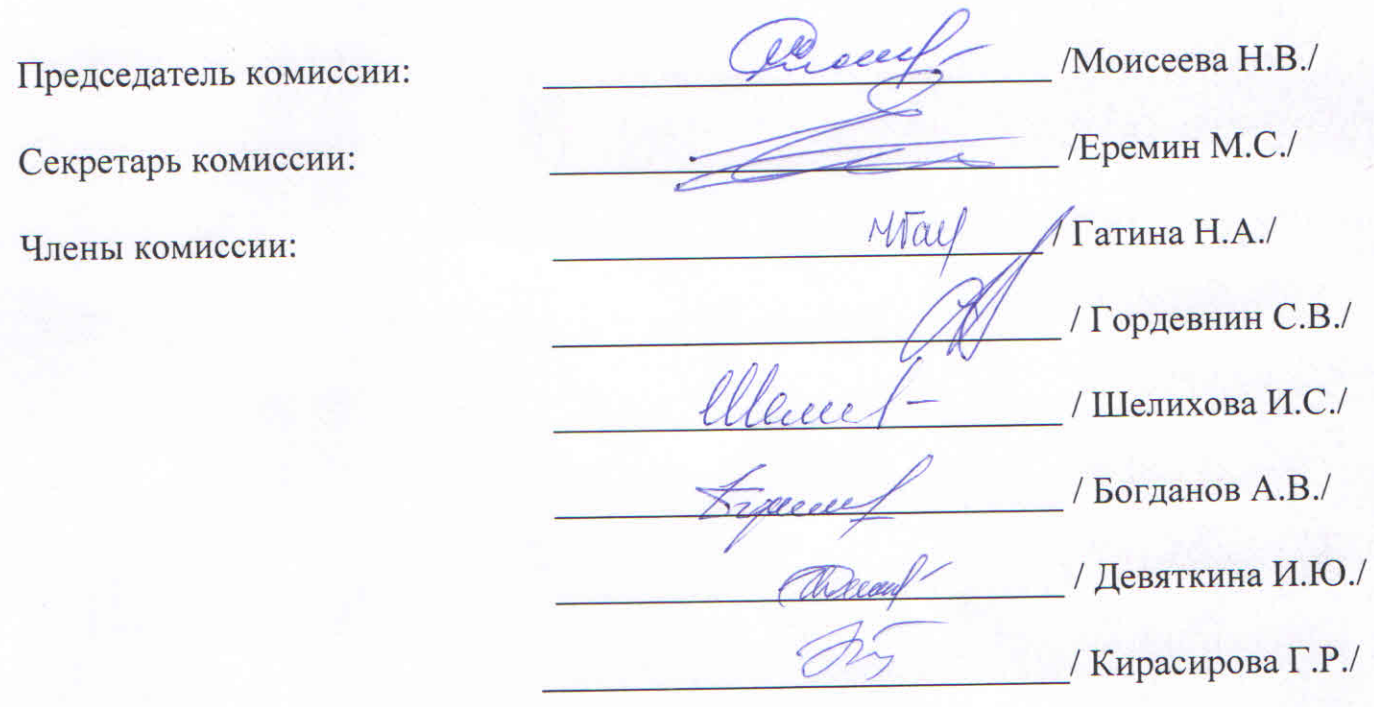 Председатель комиссии: /Моисеева Н.В./
Секретарь комиссии: /Еремин М.С./
Члены комиссии: / Гатина Н.А./
/ Гордевнин С.В./
/ Шелихова И.С./
/ Богданов А.В./
/ Девяткина И.Ю./
/ Кирасирова Г.Р./